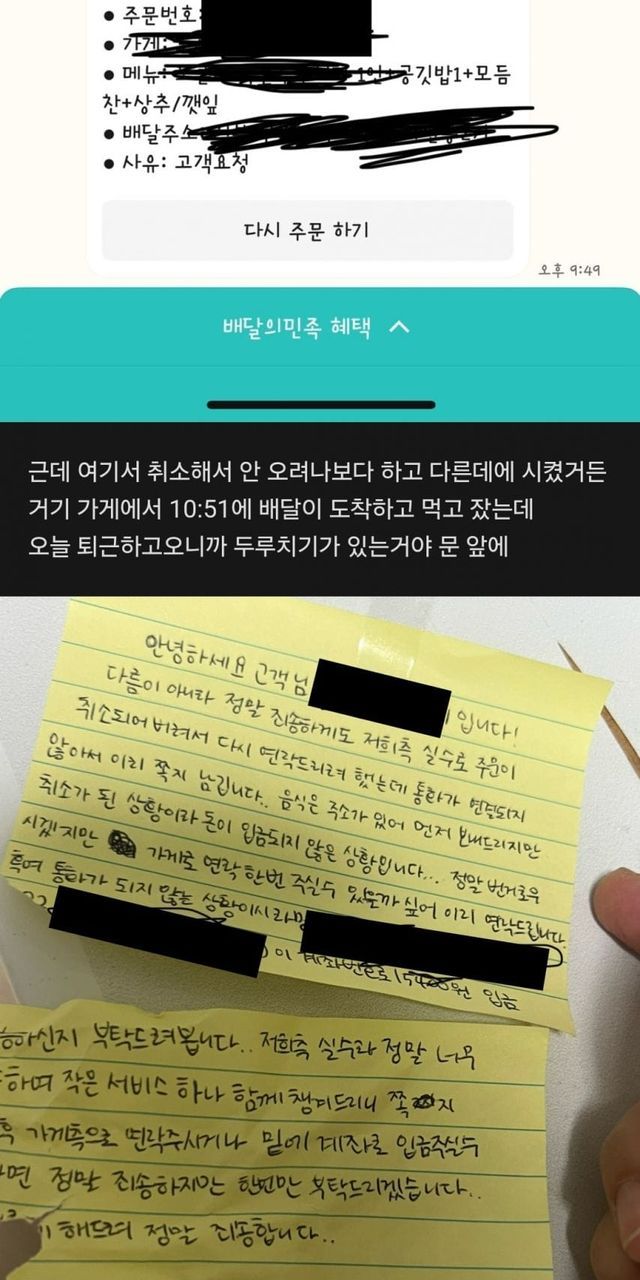 • 주문번호:
• 가게:
• 메뉴: 1인+공깃밥1+모듬
찬+상추/깻잎
• 배달주소
• 사유: 고객요청
다시 주문 하기
오후 9:49
배달의민족 혜택
근데 여기서 취소해서 안 오려나보다 하고 다른데에 시켰거든
거기 가게에서 10:51에 배달이 도착하고 먹고 잤는데
오늘 퇴근하고오니까 두루치기가 있는거야 문 앞에
안녕하세요 고객님 입니다!
다름이 아니라 정말 죄송하게도 저희측 실수로 주문이
취소되어 버려서 다시 연락드리려 했는데 통화가 연결되지
않아서 이리 쪽지 남깁니다.. 음식은 주소가 있어 먼저 보내드리지만
취소가 된 상황이라 돈이 입금되지 않은 상황입니다... 정말 번거로우
시겠지만 가게로 연락 한번 주실수 있을까 싶어 이리 연락드립니다
혹여 통화가 되지 않는 상황이시라면
이 계좌번호로 15400원 입금
능하신지 부탁드려봅니다.. 저희측 실수라 정말 너무
하여 작은 서비스 하나 함께 챙겨드리니 쪽지
혹 가게측으로 연락주시거나 밑에 계좌로 입금주실수
면 정말 죄송하지만 한번만 부탁드리겠습니다..
해드려 정말 죄송합니다..